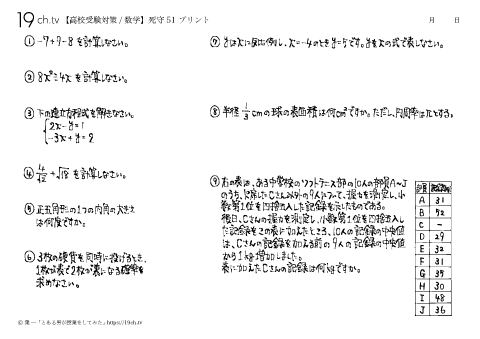 19 ch.tv 【高校受験対策/数学】死守51プリント 月 日
① -7+9-8 を計算しなさい。
② 8x²÷4x を計算しなさい。
③ 下の連立方程式を解きなさい。
2x-y=1
-3x+y=2
④ 4/√2 + √18 を計算しなさい。
⑤ 正五角形の1つの内角の大きさ
は何度ですか。
⑥ 3枚の硬貨を同時に投げるとき、
1枚が表で2枚が裏になる確率を
求めなさい。
⑦ yはxに反比例し、x=-4のときy=5です。yをxの式で表しなさい。
⑧ 半径 1/3 cmの球の表面積は何cm²ですか。ただし、円周率はπとする。
⑨ 右の表は、ある中学校のソフトテニス部の10人の部員A~J
のうち、欠席したCさん以外の9人について、握力を測定し、小
数第1位を四捨五入した記録を示したものである。
後日、Cさんの握力を測定し、小数第1位を四捨五入し
た記録をこの表に加えたところ、10人の記録の中央値
は、Cさんの記録を加える前の9人の記録の中央値
から1kg増加しました。
表に加えたCさんの記録は何kgですか。
部員
A 31
B 52
C -
D 29
E 32
F 31
G 35
H 30
I 48
J 36
© 葉一「とある男が授業をしてみた」https://19ch.tv